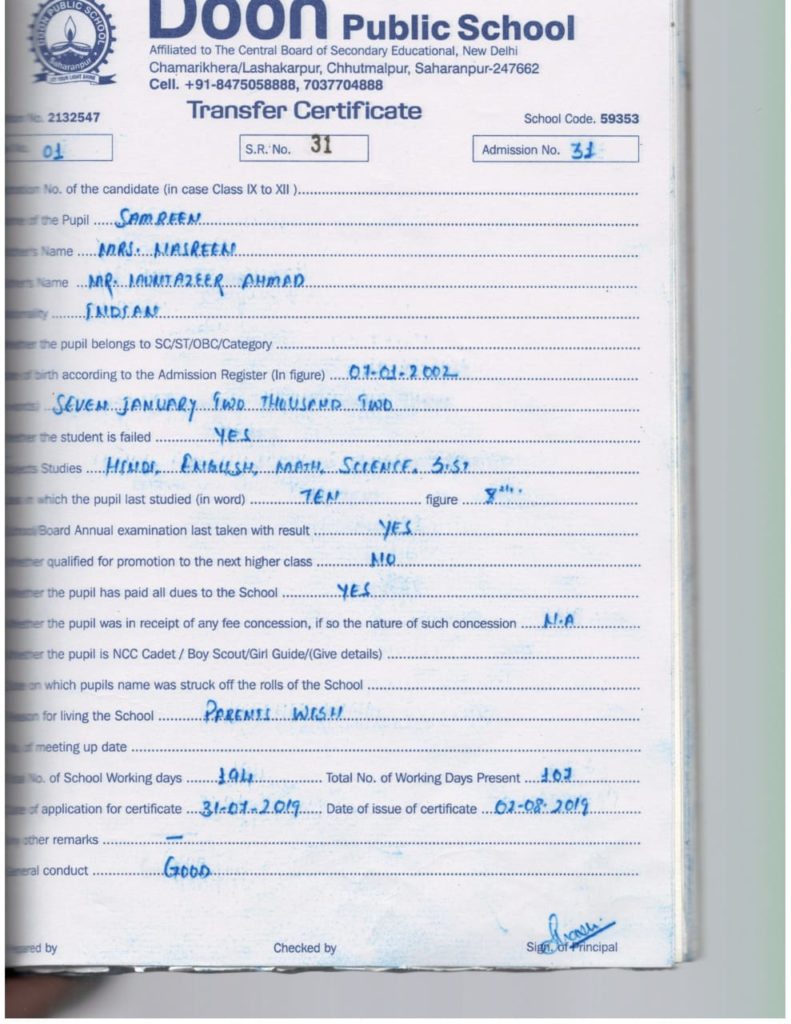 DOON PUBLIC SCHOOL
Saharanpur
Doon Public School
Affiliated to The Central Board of Secondary Educational, New Delhi
Chamarikhera/Lashakarpur, Chhutmalpur, Saharanpur-247662
Cell. +91-8475058888, 7037704888
No. 2132547 Transfer Certificate School Code. 59353
01 S.R. No. 31 Admission No. 31
No. of the candidate (in case Class IX to XII )
of the Pupil SAMREEN
Name MRS. NASREEN
Name MR. MUMTAZEER AHMAD
INDIAN
the pupil belongs to SC/ST/OBC/Category
birth according to the Admission Register (In figure) 07-01-2002
SEVEN JANUARY TWO THOUSAND TWO
the student is failed YES
Studies HINDI, ENGLISH, MATH, SCIENCE, S.ST
which the pupil last studied (in word) TEN figure
Board Annual examination last taken with result YES
qualified for promotion to the next higher class NO
the pupil has paid all dues to the School YES
the pupil was in receipt of any fee concession, if so the nature of such concession N.A
the pupil is NCC Cadet / Boy Scout/Girl Guide/(Give details)
on which pupils name was struck off the rolls of the School
for living the School PARENTS WISH
of meeting up date
No. of School Working days 194 Total No. of Working Days Present 107
of application for certificate 31-07-2019 Date of issue of certificate 02-08-2019
other remarks —
conduct GOOD
by Checked by Sign. of Principal